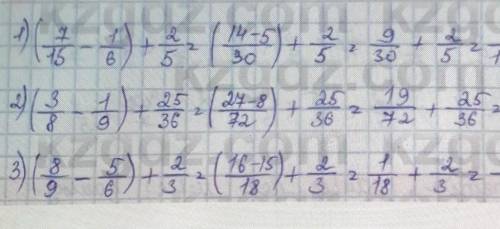 1) (7/15 - 1/6) + 2/5 = (14-5/30) + 2/5 = 9/30 + 2/5 =
2) (3/8 - 1/9) + 25/36 = (27-8/72) + 25/36 = 19/72 + 25/36 =
3) (8/9 - 5/6) + 2/3 = (16-15/18) + 2/3 = 1/18 + 2/3 =